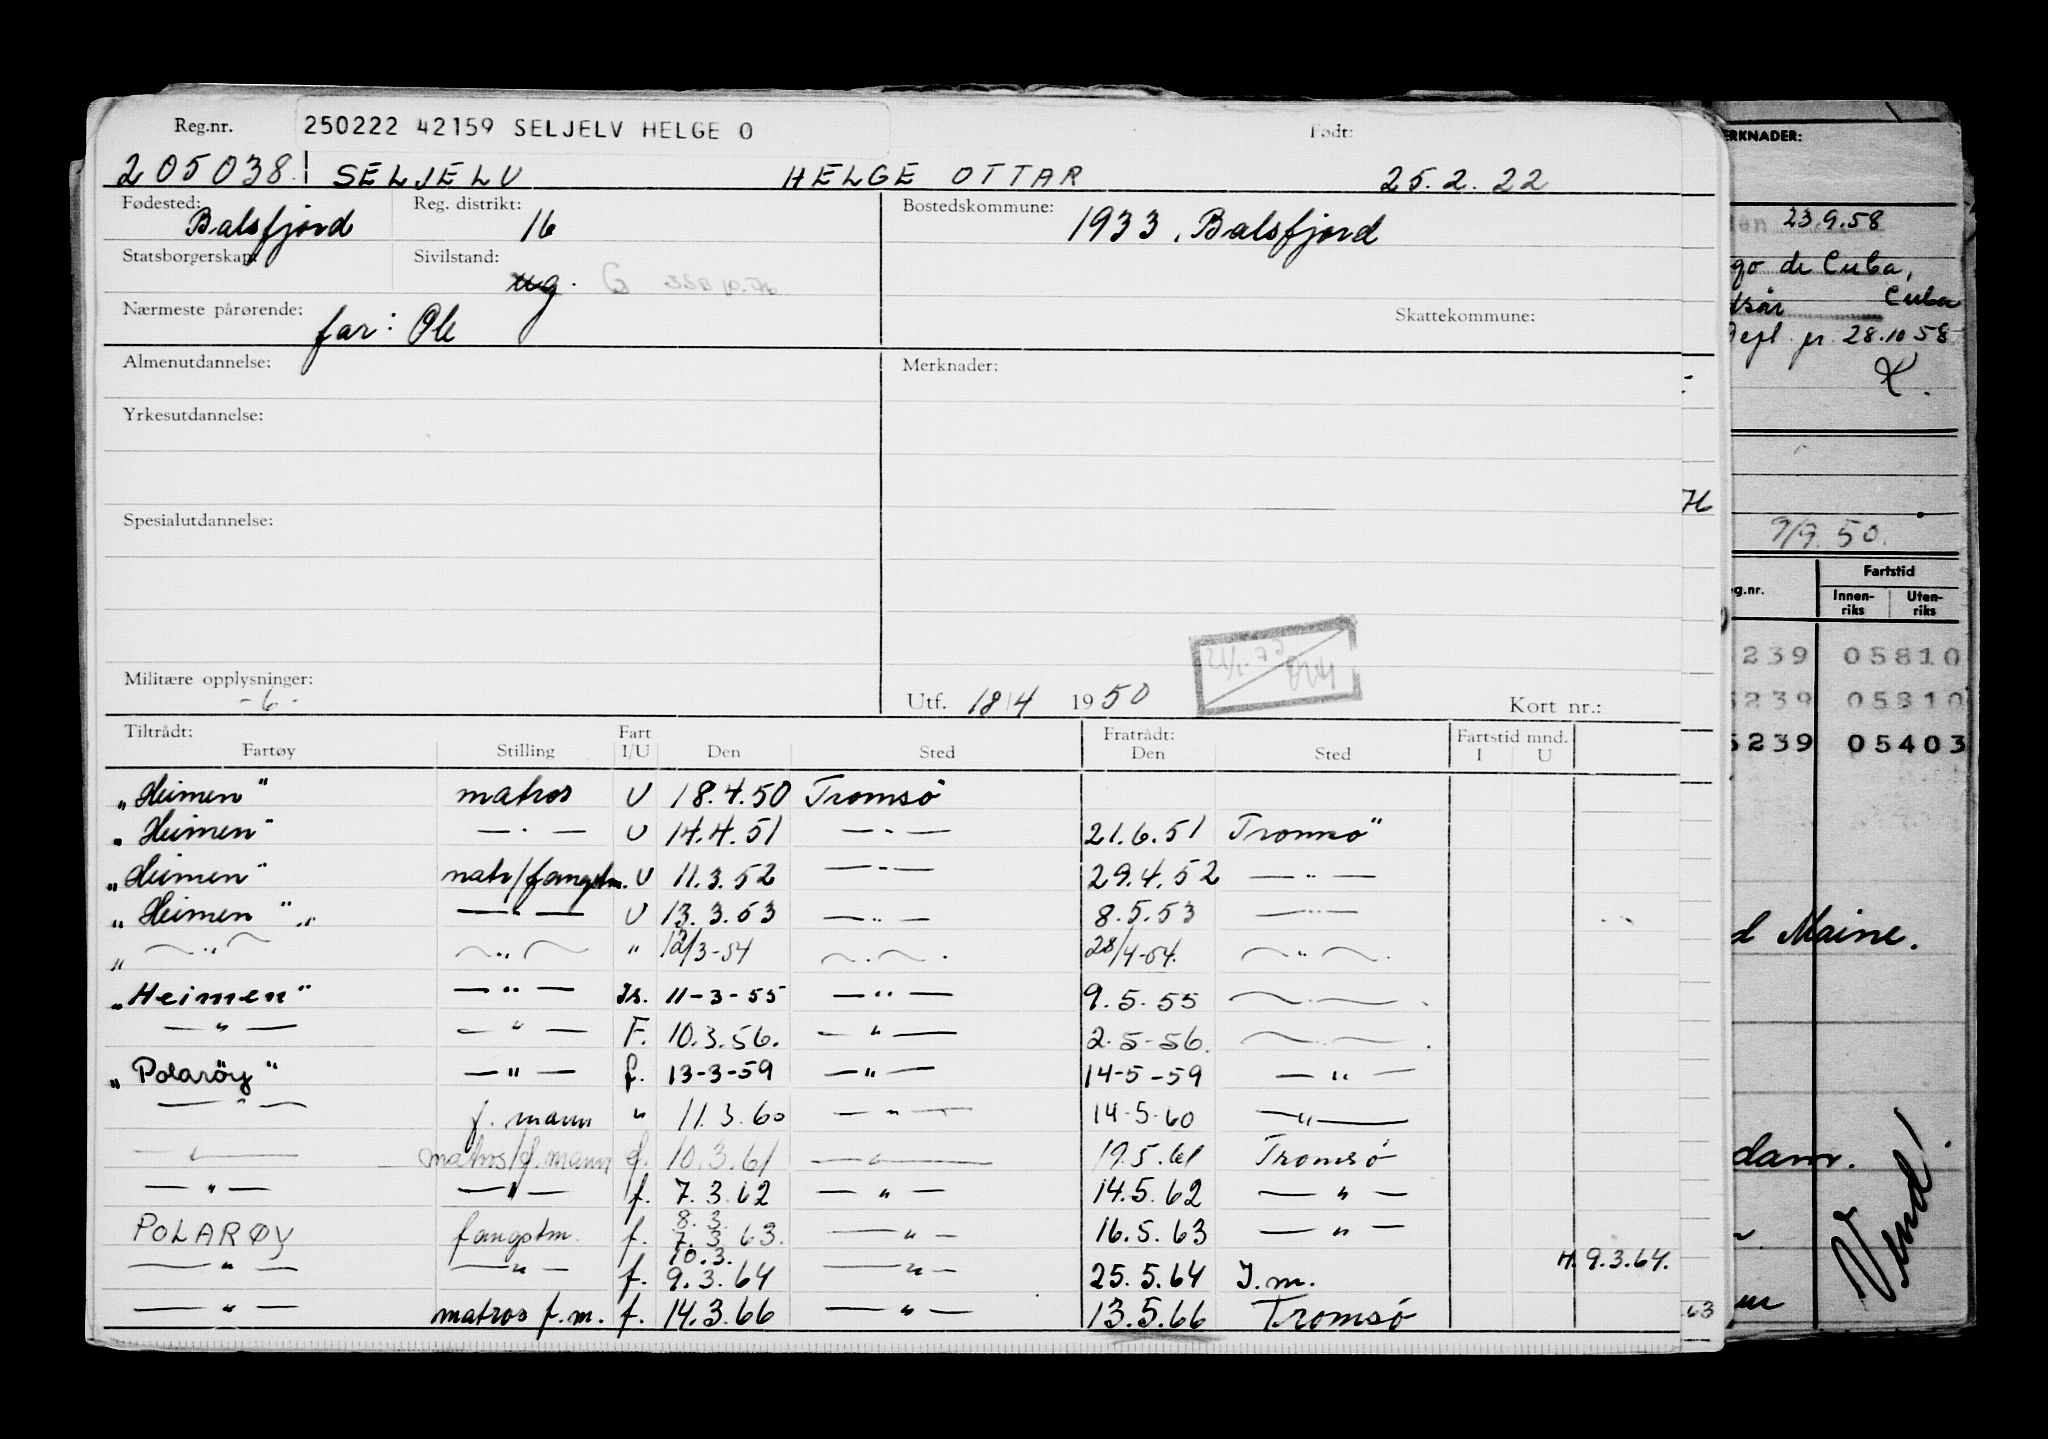 Reg.nr. 250222 42159 SELJELV HELGE O Født:
205038 SELJELV HELGE OTTAR 25.2.22
Fødested: Balsfjord Reg. distrikt: 16 Bostedskommune: 1933, Balsfjord
Statsborgerskap: Sivilstand: ug. G
Nærmeste pårørende: far: Ole Skattekommune:
Almenutdannelse: Merknader:
Yrkesutdannelse:
Spesialutdannelse:
Militære opplysninger: -6- Utf. 18/4 1950 Kort nr.:
Tiltrådt: Fart Fratrådt: Fartstid mnd.
Fartøy Stilling I/U Den Sted Den Sted I U
„Heimen" matros U 18.4.50 Tromsø
„Heimen" — " — U 14.4.51 — " — 21.6.51 Tromsø"
„Heimen" matr/fangstm. U 11.3.52 — " — 29.4.52 — " —
„Heimen" „ — " — U 13.3.53 — " — 8.5.53 — " —
„ — " — — " — " 12/3-54 — " — 28/4-54. — " —
„Heimen" — " — Is. 11-3-55 — " — 9.5.55 — " —
— " — — " — F. 10.3.56. — " — 2.5-56. — " —
„Polarøy" — " — f. 13-3-59 — " — 14-5-59 — " —
— " — f. mann " 11.3.60 — " — 14-5-60 — " —
— " — matros/f.mann f. 10.3.61 — " — 19.5.61 Tromsø
— " — — " — f. 7.3.62 — " — 14.5.62 — " —
POLARØY fangstm. f. 8.3. 7.3.63. — " — 16.5.63 — " —
— " — — " — f. 10.3. 9.3.64 — " — 25.5.64 I.m. H.9.3.64.
— " — matros f.m. f. 14.3.66 — " — 13.5.66 Tromsø
76
63
ERKNADER:
23.9.58
go de Cuba,
Cuba
28.10.58
9/9.50.
g.nr. Fartstid
Innen-riks Uten-riks
239 05810
5239 05810
5239 05403
d Maine.
dam.
Vend!